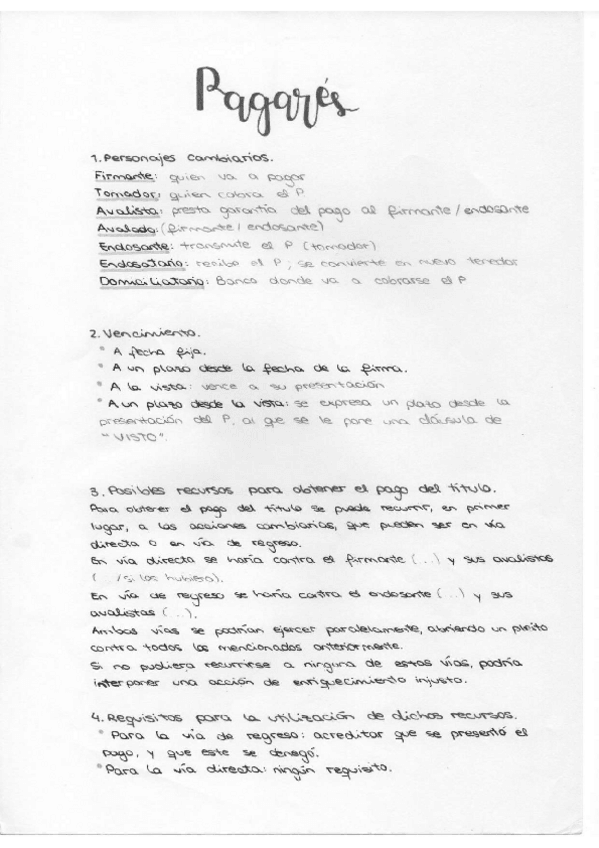 Pagarés
1. Personajes cambiarios.
Firmante: quien va a pagar
Tomador: quien cobra el P.
Avalista: presta garantía del pago al firmante/endosante
Avalado: (firmante/endosante)
Endosante: transmite el P (tomador)
Endosatario: recibe el P; se convierte en nuevo tenedor
Domiciliatario: Banco donde va a cobrarse el P
2. Vencimiento.
* A fecha fija.
* A un plazo desde la fecha de la firma.
* A la vista: vence a su presentación
* A un plazo desde la vista: se expresa un plazo desde la
presentación del P, al que se le pone una cláusula de
"VISTO".
3. Posibles recursos para obtener el pago del título.
Para obtener el pago del título se puede recurrir, en primer
lugar, a las acciones cambiarias, que pueden ser en vía
directa o en vía de regreso.
En vía directa se haría contra el firmante (...) y sus avalistas
(... /si los hubiera).
En vía de regreso se haría contra el endosante (...) y sus
avalistas (...).
Ambas vías se podrían ejercer paralelamente, abriendo un pleito
contra todos los mencionados anteriormente.
Si no pudiera recurrirse a ninguna de estas vías, podría
interponer una acción de enriquecimiento injusto.
4. Requisitos para la utilización de dichos recursos.
* Para la vía de regreso: acreditar que se presentó el
pago, y que este se denegó.
* Para la vía directa: ningún requisito.